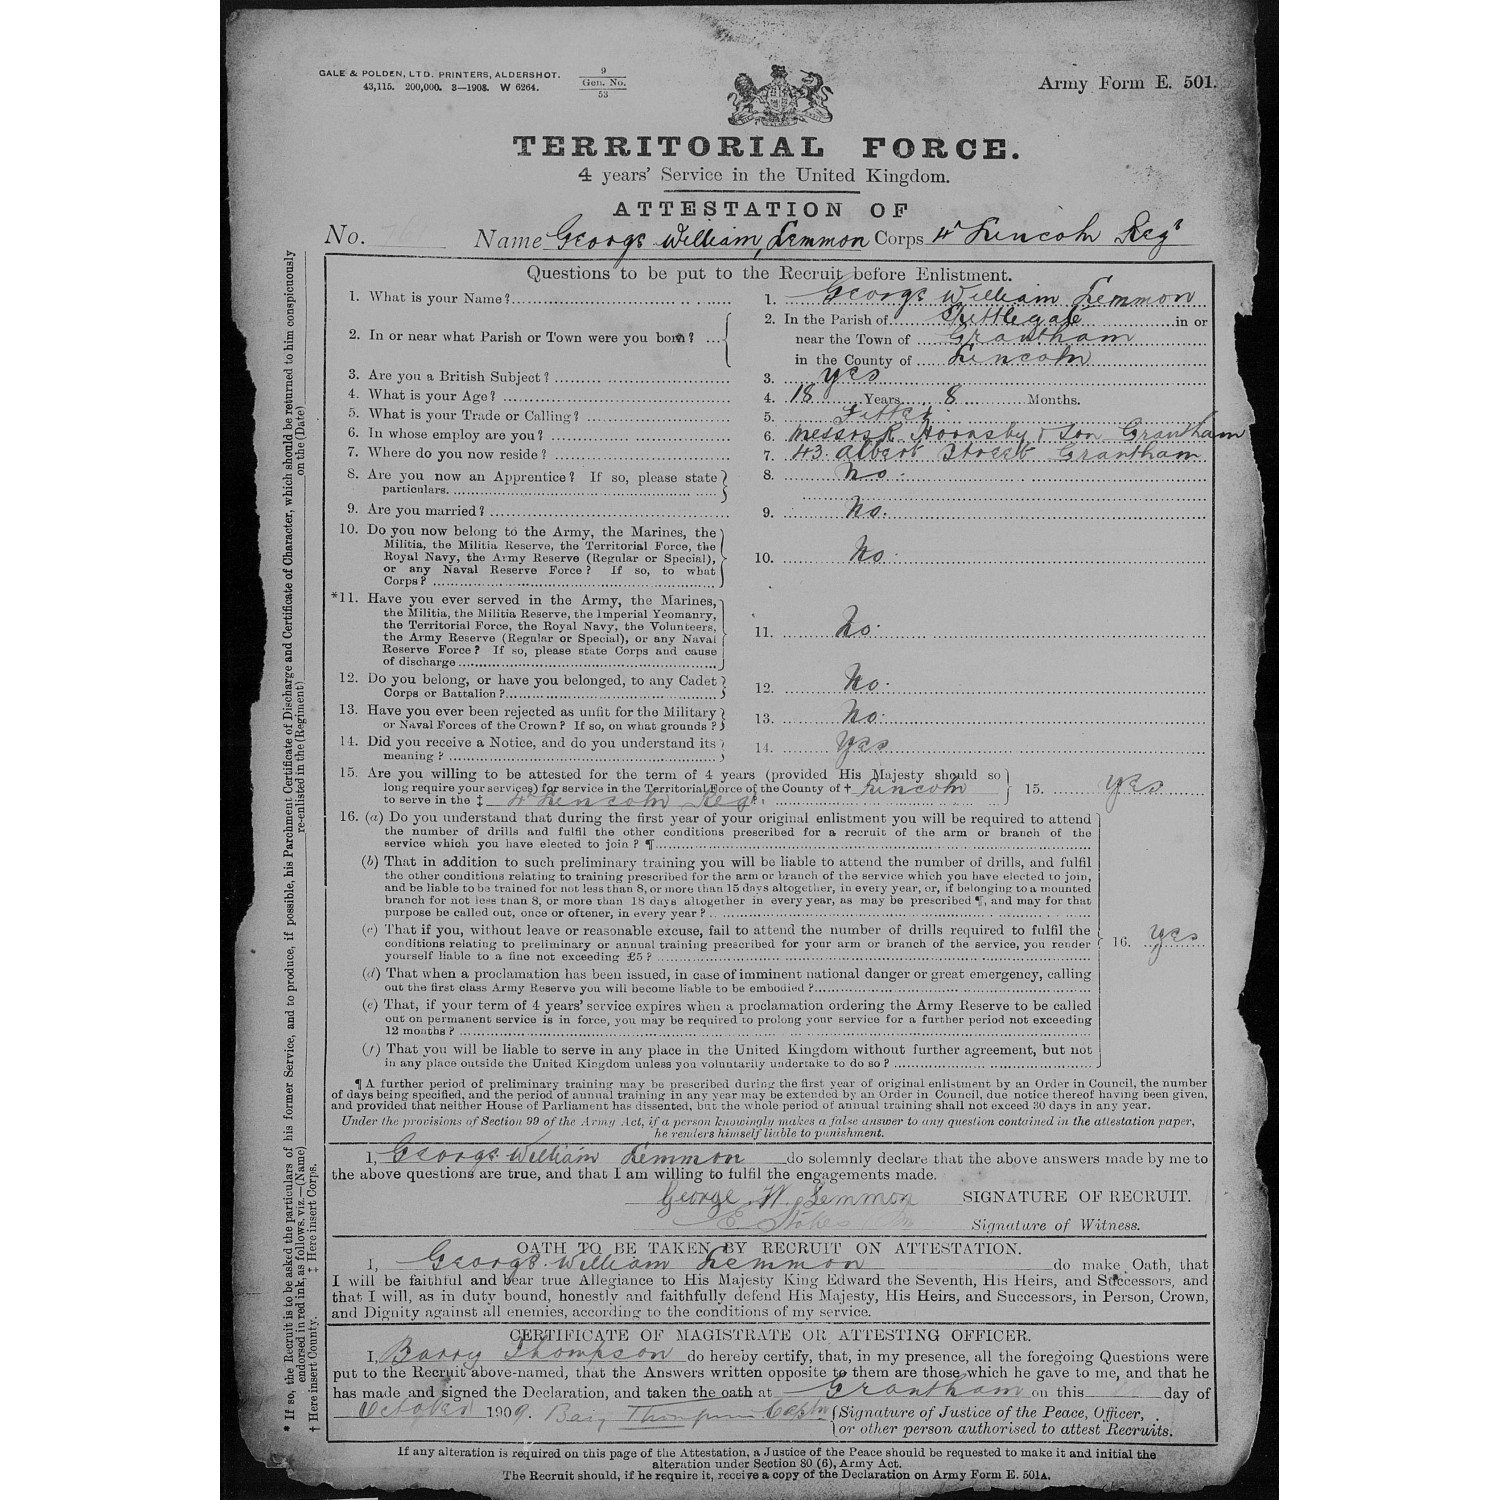 GALE & POLDEN, LTD. PRINTERS, ALDERSHOT.
43,115. 200,000. 3—1908. W 6264.
9
Gen. No.
53
Army Form E. 501.
TERRITORIAL FORCE.
4 years' Service in the United Kingdom.
ATTESTATION OF
No. Name George William Lemmon Corps 4th Lincoln Regt
Questions to be put to the Recruit before Enlistment.
1. What is your Name? 1. George William Lemmon
2. In or near what Parish or Town were you born? 2. In the Parish of in or
near the Town of Grantham
in the County of Lincoln
3. Are you a British Subject? 3. Yes
4. What is your Age? 4. 18 Years 8 Months.
5. What is your Trade or Calling? 5. Fitter
6. In whose employ are you? 6. Messrs R Hornsby & Son Grantham
7. Where do you now reside? 7. 43 Albert Street Grantham
8. Are you now an Apprentice? If so, please state particulars. 8. No.
9. Are you married? 9. No.
10. Do you now belong to the Army, the Marines, the
Militia, the Militia Reserve, the Territorial Force, the
Royal Navy, the Army Reserve (Regular or Special),
or any Naval Reserve Force? If so, to what
Corps? 10. No.
*11. Have you ever served in the Army, the Marines,
the Militia, the Militia Reserve, the Imperial Yeomanry,
the Territorial Force, the Royal Navy, the Volunteers,
the Army Reserve (Regular or Special), or any Naval
Reserve Force? If so, please state Corps and cause
of discharge 11. No.
12. Do you belong, or have you belonged, to any Cadet
Corps or Battalion? 12. No.
13. Have you ever been rejected as unfit for the Military
or Naval Forces of the Crown? If so, on what grounds? 13. No.
14. Did you receive a Notice, and do you understand its
meaning? 14. Yes
15. Are you willing to be attested for the term of 4 years (provided His Majesty should so
long require your services) for service in the Territorial Force of the County of † Lincoln
to serve in the ‡ 4th Lincoln Regt. 15. Yes
16. (a) Do you understand that during the first year of your original enlistment you will be required to attend
the number of drills and fulfil the other conditions prescribed for a recruit of the arm or branch of the
service which you have elected to join? ¶
(b) That in addition to such preliminary training you will be liable to attend the number of drills, and fulfil
the other conditions relating to training prescribed for the arm or branch of the service which you have elected to join,
and be liable to be trained for not less than 8, or more than 15 days altogether, in every year, or, if belonging to a mounted
branch for not less than 8, or more than 18 days altogether in every year, as may be prescribed ¶, and may for that
purpose be called out, once or oftener, in every year?
(c) That if you, without leave or reasonable excuse, fail to attend the number of drills required to fulfil the
conditions relating to preliminary or annual training prescribed for your arm or branch of the service, you render
yourself liable to a fine not exceeding £5? 16. Yes
(d) That when a proclamation has been issued, in case of imminent national danger or great emergency, calling
out the first class Army Reserve you will become liable to be embodied?
(e) That, if your term of 4 years' service expires when a proclamation ordering the Army Reserve to be called
out on permanent service is in force, you may be required to prolong your service for a further period not exceeding
12 months?
(f) That you will be liable to serve in any place in the United Kingdom without further agreement, but not
in any place outside the United Kingdom unless you voluntarily undertake to do so?
¶ A further period of preliminary training may be prescribed during the first year of original enlistment by an Order in Council, the number
of days being specified, and the period of annual training in any year may be extended by an Order in Council, due notice thereof having been given,
and provided that neither House of Parliament has dissented, but the whole period of annual training shall not exceed 30 days in any year.
Under the provisions of Section 99 of the Army Act, if a person knowingly makes a false answer to any question contained in the attestation paper,
he renders himself liable to punishment.
I, George William Lemmon do solemnly declare that the above answers made by me to
the above questions are true, and that I am willing to fulfil the engagements made.
George W. Lemmon SIGNATURE OF RECRUIT.
E Stokes Signature of Witness.
OATH TO BE TAKEN BY RECRUIT ON ATTESTATION.
I, George William Lemmon do make Oath, that
I will be faithful and bear true Allegiance to His Majesty King Edward the Seventh, His Heirs, and Successors, and
that I will, as in duty bound, honestly and faithfully defend His Majesty, His Heirs, and Successors, in Person, Crown,
and Dignity against all enemies, according to the conditions of my service.
CERTIFICATE OF MAGISTRATE OR ATTESTING OFFICER.
I, Barry Thompson do hereby certify, that, in my presence, all the foregoing Questions were
put to the Recruit above-named, that the Answers written opposite to them are those which he gave to me, and that he
has made and signed the Declaration, and taken the oath at Grantham on this day of
October 1909. Barry Thompson Captn Signature of Justice of the Peace, Officer,
or other person authorised to attest Recruits.
If any alteration is required on this page of the Attestation, a Justice of the Peace should be requested to make it and initial the
alteration under Section 80 (6), Army Act.
The Recruit should, if he require it, receive a copy of the Declaration on Army Form E. 501A.
* If so, the Recruit is to be asked the particulars of his former Service, and to produce, if possible, his Parchment Certificate of Discharge and Certificate of Character, which should be returned to him conspicuously
endorsed in red ink, as follows, viz.—(Name) re-enlisted in the (Regiment) on the (Date)
† Here insert County. ‡ Here insert Corps.